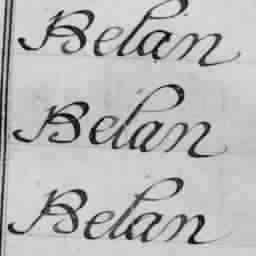 Belan
Belan
Belan